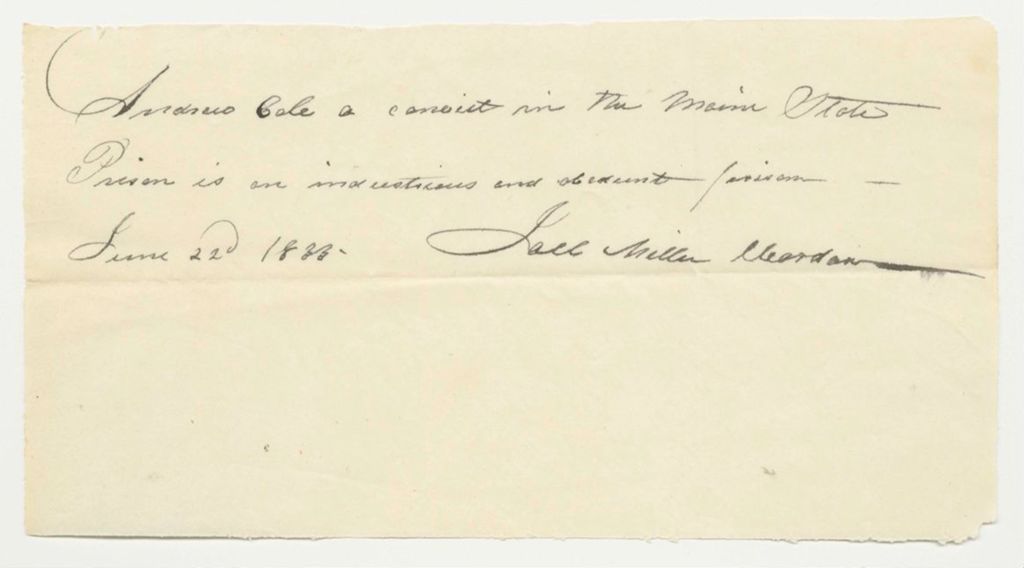 Andrew Cole a convict in the Maine State
Prison is an industrious and obedient prison —
June 22d 1833- Joel Miller Warden